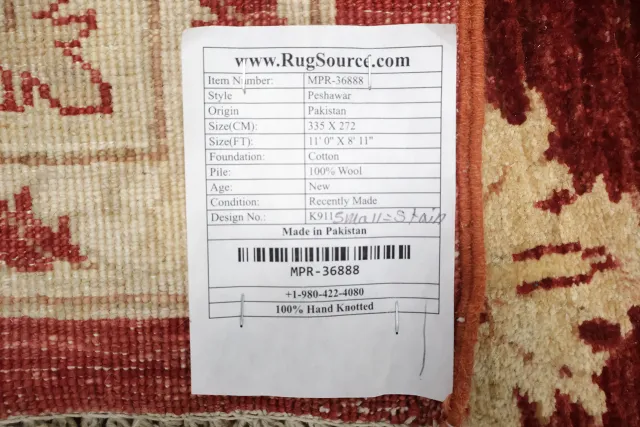 www.RugSource.com
Item Number: MPR-36888
Style Peshawar
Origin Pakistan
Size(CM): 335 X 272
Size(FT): 11' 0" X 8' 11"
Foundation: Cotton
Pile: 100% Wool
Age: New
Condition: Recently Made
Design No.: K911 Small = Stain
Made in Pakistan
MPR-36888
+1-980-422-4080
100% Hand Knotted